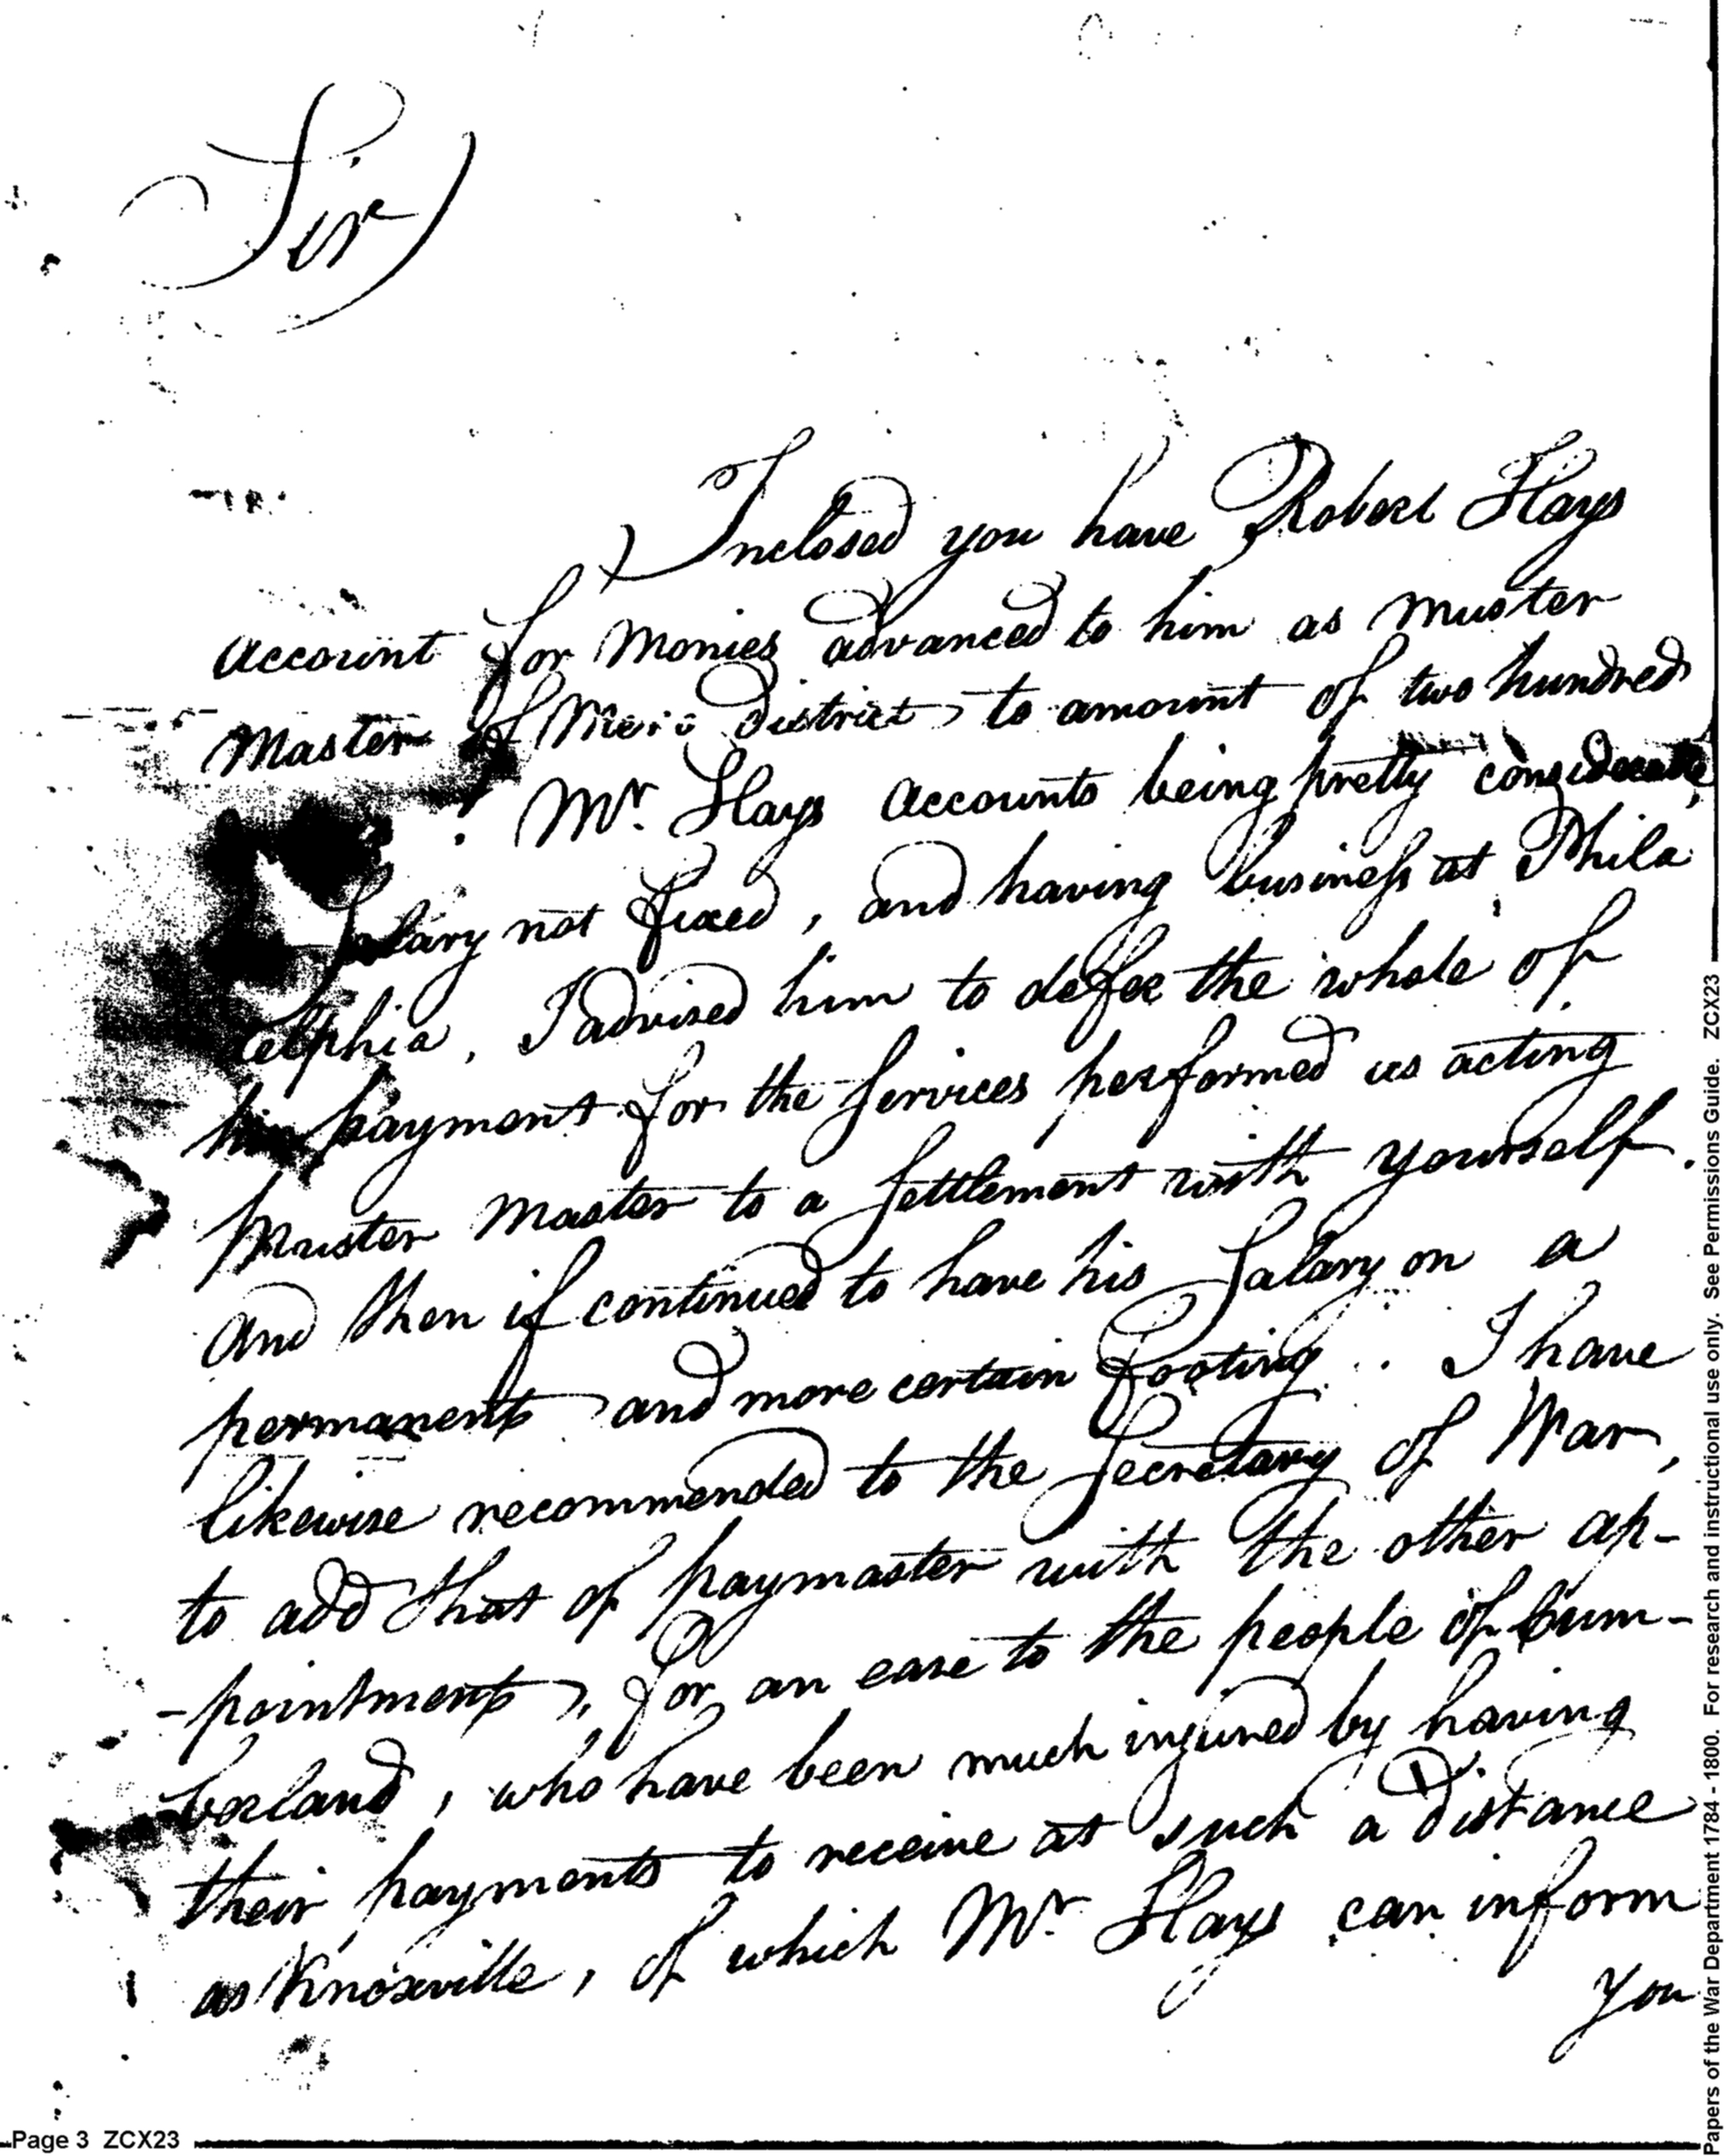 Sir
Inclosed you have Robert Hays
account for Monies advanced to him as Muster
Master of Mero District, to amount of two hundred
Mr. Hays accounts being pretty considerable
Salary not fixed, and having business at Phila
delphia, I advised him to defer the whole of
his payment for the Services performed as acting
Muster Master to a Settlement with yourself.
and then if continued to have his Salary on a
permanent and more certain footing. I have
likewise recommended to the Secretary of War,
to add that of paymaster with the other ap-
-pointment, for an ease to the people of Cum-
berland, who have been much injured by having
their payments to receive at such a distance
as Knoxville, of which Mr. Hays can inform
you
Page 3 ZCX23
Papers of the War Department 1784 - 1800. For research and instructional use only. See Permissions Guide. ZCX23